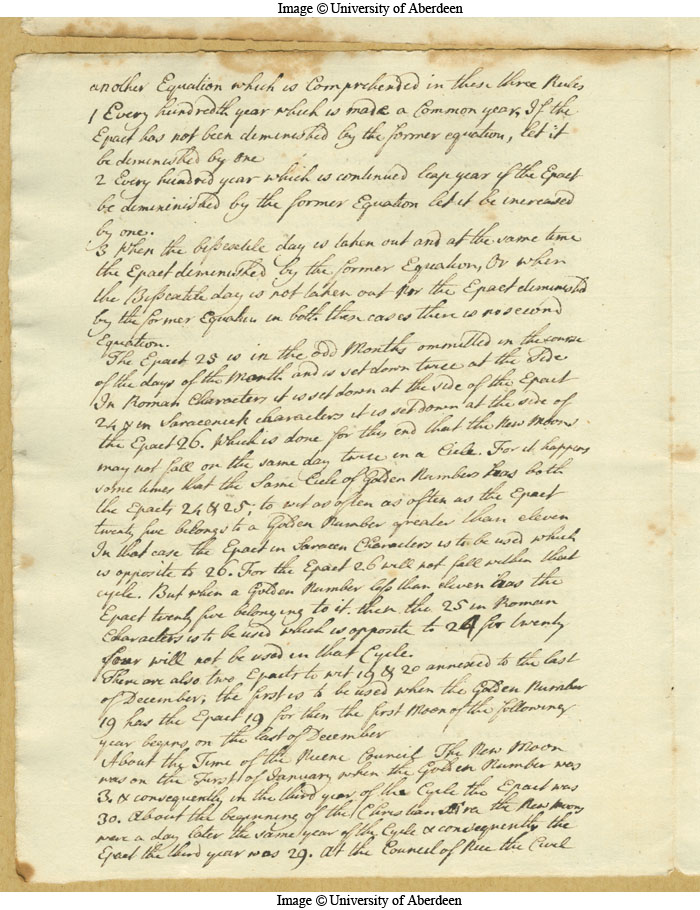 Image © University of Aberdeen
another Equation which is Comprehended in these three Rules
1 Every hundredth year which is made a Common year, If the
Epact has not been deminished by the former equation, let it
be deminished by one
2 Every hundred year which is continued leap year if the Epact
be demininished by the former Equation let it be increased
by one.
3 When the bissextile day is taken out and at the same time
the Epact deminished by the former Equation, Or when
the Bissextile day is not taken out Nor the Epact deminished
by the former Equation in both these cases there is no second
Equation.
The Epact 25 is in the odd Months ommitted in the course
of the days of the Month and is set down twice at the Side
In Roman Characters it is set down at the side of the Epact
24 & in Saracenick characters it is set down at the side of
the Epact 26. Which is done for this end that the New Moons
may not fall on the same day twice in a Cicle. For it happens
some times that the Same Cicle of Golden Numbers has both
the Epacts 24 & 25, to wit as often as often as the Epact
twenty five belongs to a Golden Number greater than eleven
In that case the Epact in Saracen Characters is to be used which
is opposite to 26. For the Epact 26 will not fall within that
cycle. But when a Golden Number less than eleven has the
Epact twenty five belonging to it. then the 25 in Roman
Characters is to be used which is opposite to 24 for twenty
four will not be used in that Cycle.
There are also two Epacts to wit 19 & 20 annexed to the last
of December, the first is to be used when the Golden Number
19 has the Epact 19 for then the first Moon of the following
year begins on the last of December
About the Time of the Nicene Council The New Moon
was on the First of January when the Golden Number was
3. & consequently in the third year of the Cycle the Epact was
30. About the beginning of the Christian Æra the New Moons
were a day later the same year of the Cycle & consequently the
Epact the third year was 29. At the Council of Nice the Civil
Image © University of Aberdeen